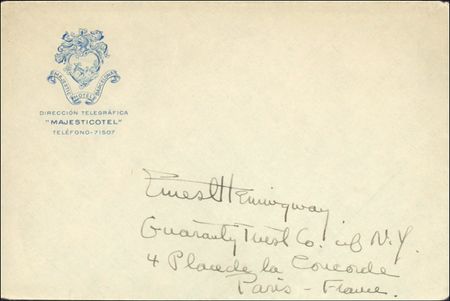 MAJESTIC HOTEL BARCELONA
DIRECCIÓN TELEGRÁFICA
"MAJESTICOTEL"
TELÉFONO-71507
Ernest Hemingway
Guaranty Trust Co. of N.Y.
4 Place de la Concorde
Paris - France.